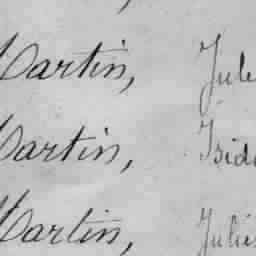 Martin, Jule
Martin, Isido
Martin, Julie